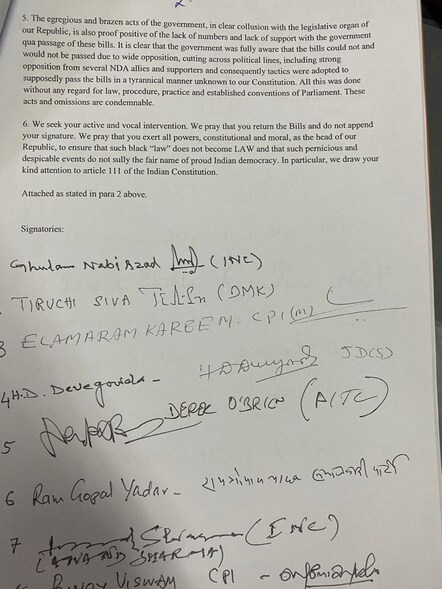 2
5. The egregious and brazen acts of the government, in clear collusion with the legislative organ of
our Republic, is also proof positive of the lack of numbers and lack of support with the government
qua passage of these bills. It is clear that the government was fully aware that the bills could not and
would not be passed due to wide opposition, cutting across political lines, including strong
opposition from several NDA allies and supporters and consequently tactics were adopted to
supposedly pass the bills in a tyrannical manner unknown to our Constitution. All this was done
without any regard for law, procedure, practice and established conventions of Parliament. These
acts and omissions are condemnable.
6. We seek your active and vocal intervention. We pray that you return the Bills and do not append
your signature. We pray that you exert all powers, constitutional and moral, as the head of our
Republic, to ensure that such black “law” does not become LAW and that such pernicious and
despicable events do not sully the fair name of proud Indian democracy. In particular, we draw your
kind attention to article 111 of the Indian Constitution.
Attached as stated in para 2 above.
Signatories:
Ghulam Nabi Azad (INC)
TIRUCHI SIVA (DMK)
3 ELAMARAM KAREEM. CPI(M)
4 H.D. Devegowda - JD(S)
5 DEREK O'BRIEN (AITC)
6 Ram Gopal Yadav -
7 (INC)
(ANAND SHARMA)
BINOY VISWAM CPI -